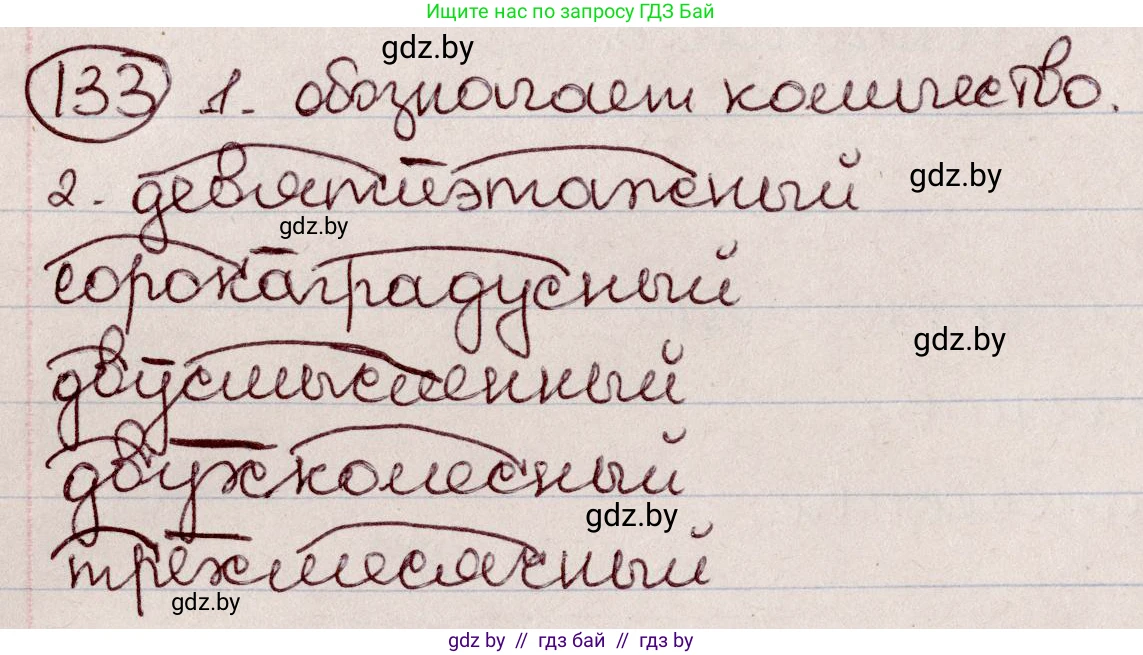 Ищите нас по запросу ГДЗ Бай
gdz.by
133 1. обозначает количество.
2. девятиэтажный
gdz.by
gdz.by
сорокаградусный
gdz.by
двусмысленный
двухколесный
gdz.by
трёхмесячный
gdz.by
gdz by // гдз бай // гдз by